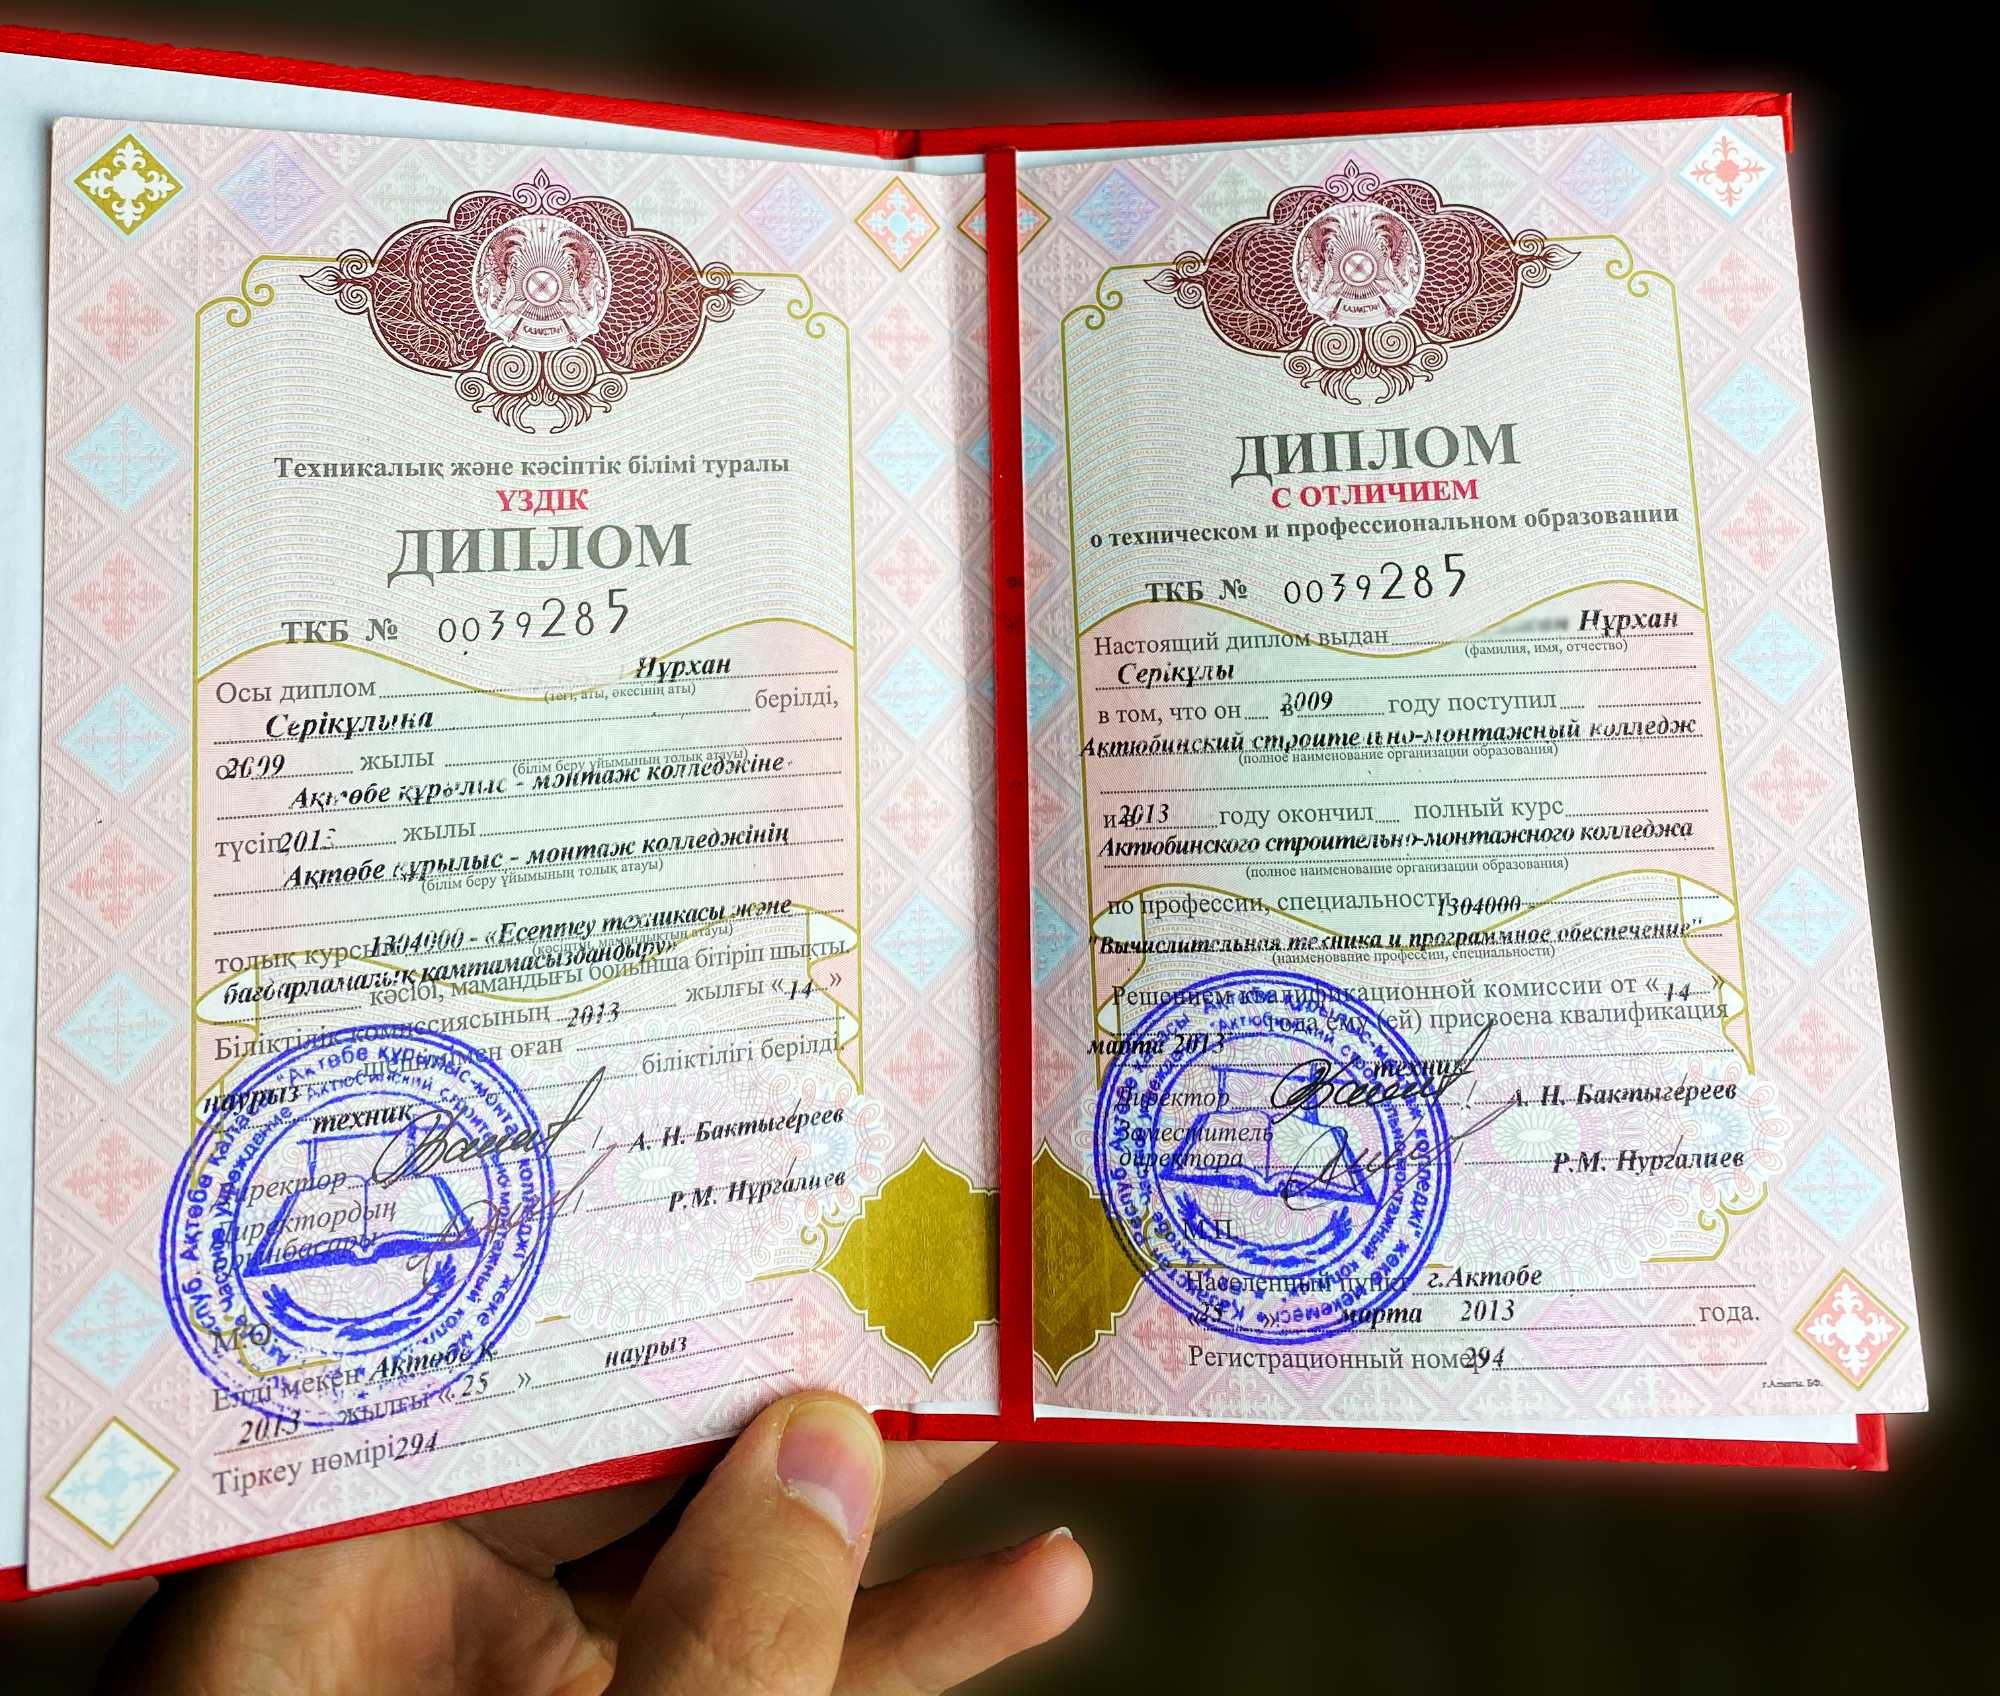 ҚАЗАҚСТАН
Техникалық және кәсіптік білімі туралы
ҮЗДІК
ДИПЛОМ
ТКБ № 0039285
Осы диплом Нұрхан
(тегі, аты, әкесінің аты)
Серікұлына берілді,
2009 жылы
(білім беру ұйымының толық атауы)
Ақтөбе құрылыс - монтаж колледжіне
түсіп 2013 жылы
Ақтөбе құрылыс - монтаж колледжінің
(білім беру ұйымының толық атауы)
толық курсын 1304000 - «Есептеу техникасы және
(кәсіптің, мамандықтың атауы)
бағдарламалық қамтамасыздандыру»
кәсібі, мамандығы бойынша бітіріп шықты.
Біліктілік комиссиясының 2013 жылғы «14»
наурыз шешімімен оған біліктілігі берілді.
техник
Директор / А. Н. Бактыгереев
Директордың
орынбасары / Р.М. Нұргалиев
М.О.
Елді мекен Ақтөбе қ.
2013 жылғы «25» наурыз
Тіркеу нөмірі 294
ҚАЗАҚСТАН
ДИПЛОМ
С ОТЛИЧИЕМ
о техническом и профессиональном образовании
ТКБ № 0039285
Настоящий диплом выдан Нұрхан
(фамилия, имя, отчество)
Серікұлы
в том, что он в 2009 году поступил
Актюбинский строительно-монтажный колледж
(полное наименование организации образования)
и в 2013 году окончил полный курс
Актюбинского строительно-монтажного колледжа
(полное наименование организации образования)
по профессии, специальности 1304000 -
"Вычислительная техника и программное обеспечение"
(наименование профессии, специальности)
Решением квалификационной комиссии от «14»
марта 2013 года ему (ей) присвоена квалификация
техник
Директор / А. Н. Бактыгереев
Заместитель
директора / Р.М. Нургалиев
М.П.
Населенный пункт г.Актобе
«25» марта 2013 года.
Регистрационный номер 294
г.Алматы. БФ.